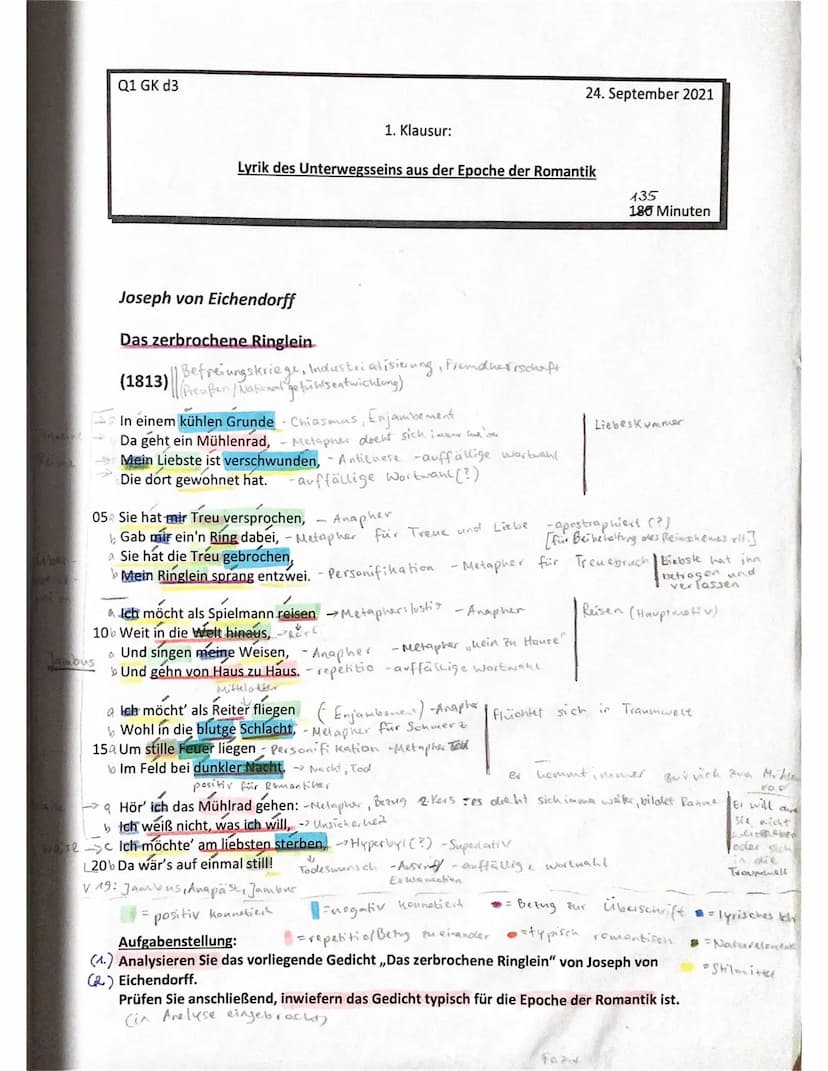 Q1 GK d3
24. September 2021
1. Klausur:
Lyrik des Unterwegsseins aus der Epoche der Romantik
135
180 Minuten
Joseph von Eichendorff
Das zerbrochene Ringlein
Befreiungskriege, Industrialisierung, Fremdherrschaft
(1813) (Preußen/National gefühlsentwicklung)
In einem kühlen Grunde - Chiasmus, Enjambement
Da geht ein Mühlenrad, - Metapher dreht sich immer weiter
Liebeskummer
Mein Liebste ist verschwunden, - Antithese - auffällige Wortwahl
Die dort gewohnet hat. - auffällige Wortwahl (?)
05 a Sie hat mir Treu versprochen, - Anapher
b Gab mir ein'n Ring dabei, - Metapher für Treue und Liebe - apostraphiert (?)
[für Beibehaltung des Reimschemas vll.]
a Sie hat die Treu gebrochen,
b Mein Ringlein sprang entzwei. - Personifikation - Metapher für Treuebruch
Liebste hat ihn
betrogen und
verlassen
a Ich möcht als Spielmann reisen → Metapher: lustig - Anapher
Reisen (Hauptmotiv)
10 b Weit in die Welt hinaus,
a Und singen meine Weisen, - Anapher - Metapher „kein zu Hause"
Jambus
b Und gehn von Haus zu Haus. - repetitio - auffällige Wortwahl
Mittelalter
a Ich möcht' als Reiter fliegen (- Enjambement) - Anapher
flüchtet sich in Traumwelt
b Wohl in die blutge Schlacht, - Metapher für Schmerz
15 a Um stille Feuer liegen - Personifikation - Metapher Tod
b Im Feld bei dunkler Nacht. → Nacht, Tod
positiv für Romantiker
er kommt immer zurück zum Mühlenrad
→ a Hör' ich das Mühlrad gehen: - Metapher, Bezug 2. Vers → es dreht sich immer weiter, bildet Rahmen
b Ich weiß nicht, was ich will, → Unsicherheit
Waise → c Ich möchte' am liebsten sterben, → Hyperbel (?) - Superlativ
20 b Da wär's auf einmal still! Todeswunsch - Ausruf - auffällige Wortwahl
Exklamation
Er will
sie nicht
oder sich
in die
Traumwelt
V 19: Jambus, Anapäst, Jambus
= positiv konnotiert
= negativ konnotiert
= Bezug zur Überschrift
= lyrisches Ich
= repetitio/Bezug zu einander
= typisch romantisch
= Naturelemente
= Stilmittel
Aufgabenstellung:
(1.) Analysieren Sie das vorliegende Gedicht „Das zerbrochene Ringlein" von Joseph von
(2.) Eichendorff.
Prüfen Sie anschließend, inwiefern das Gedicht typisch für die Epoche der Romantik ist.
(in Analyse eingebracht)
Fazit